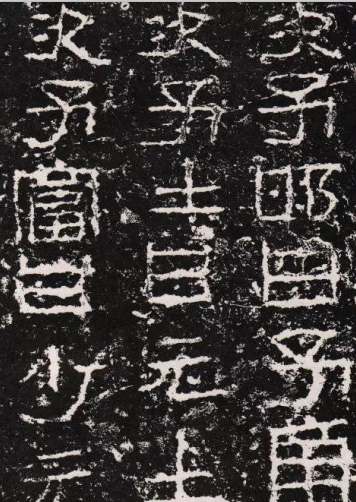 次子邯曰子南
次子士曰元士
次子富曰少元